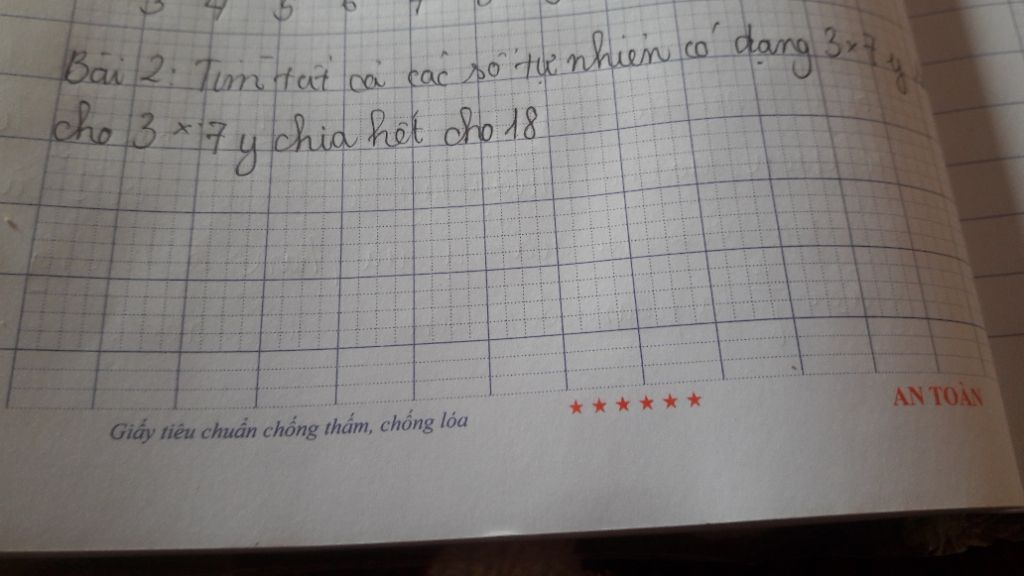 3 4 5 6 7
Bài 2: Tìm tất cả các số tự nhiên có dạng 3x7y
cho 3x7y chia hết cho 18
Giấy tiêu chuẩn chống thấm, chống lóa
★★★★★★
AN TOÀN